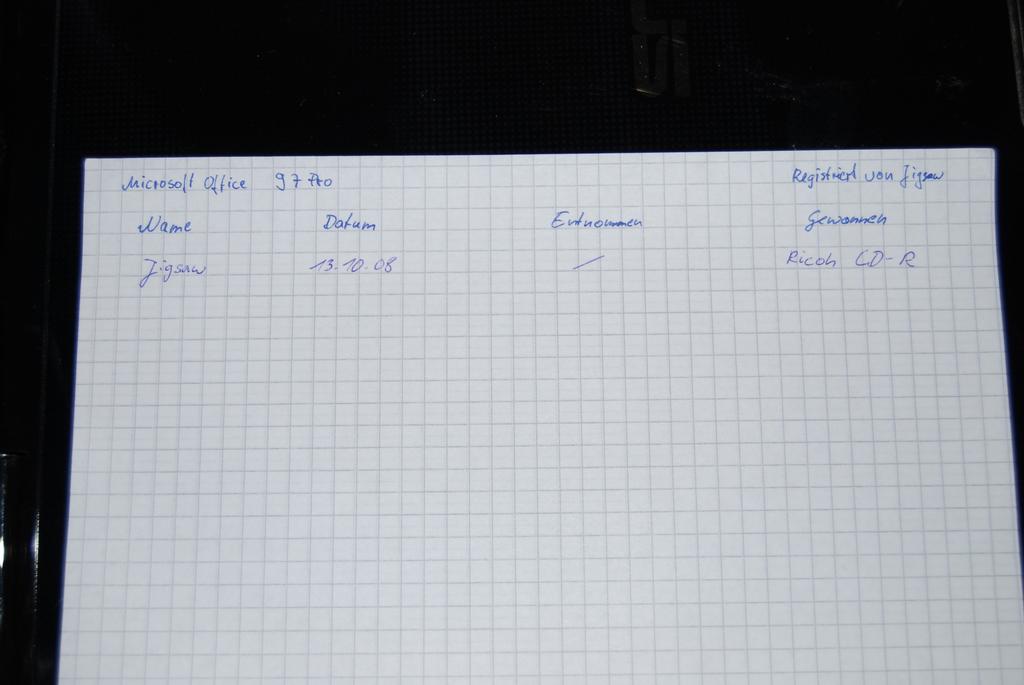 Microsoft Office 97 Pro Registriert von Jigsaw
Name Datum Entnommen Gewonnen
Jigsaw 13.10.08 / Ricoh CD-R